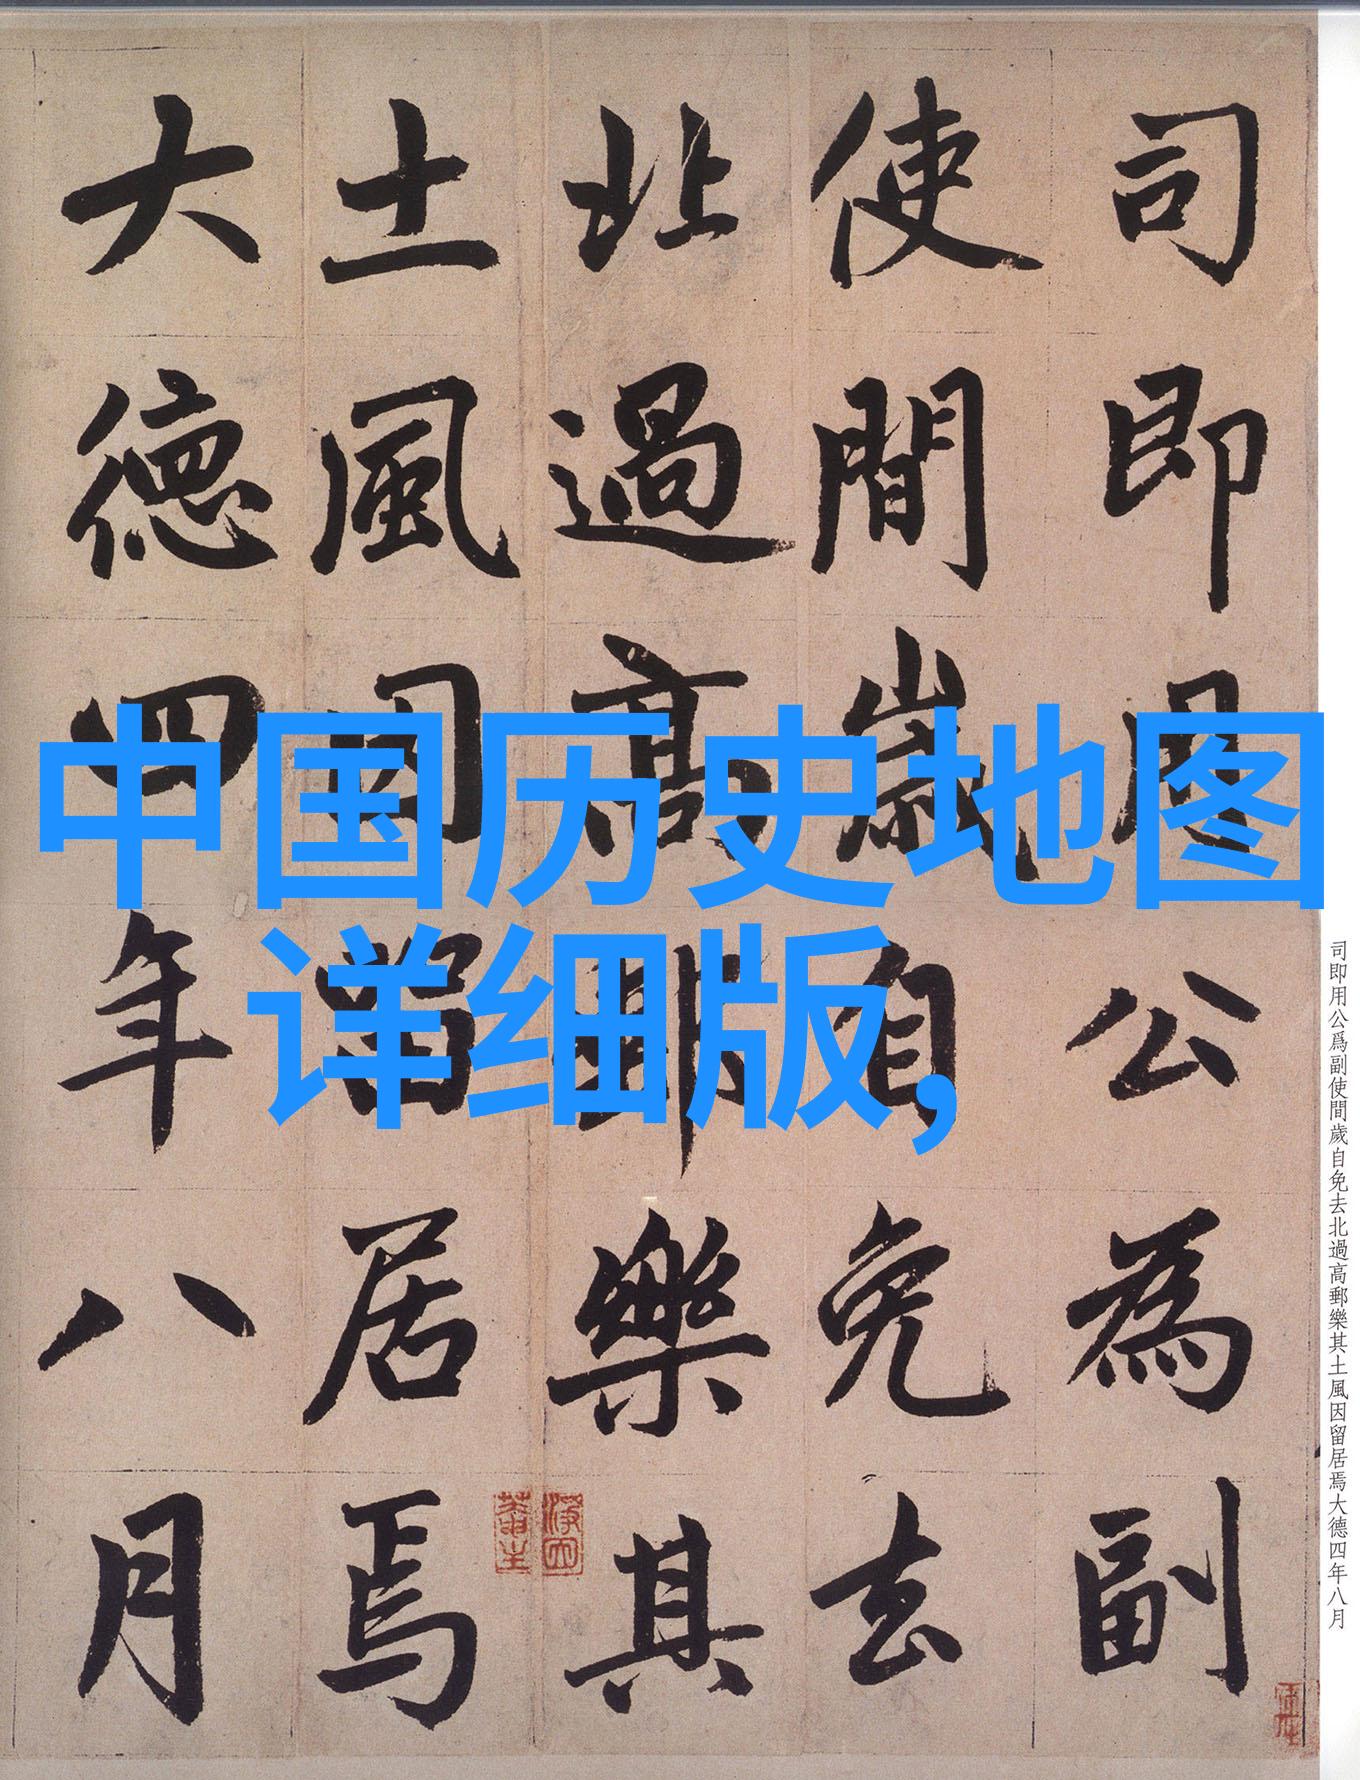 司即用公為副
使間歲自免去
北過高郵樂其
土風因留居焉
大德四年八月
中国历史地图
详细版,
司即用公爲副使間歲自免去北過高郵樂其土風因留居焉大德四年八月